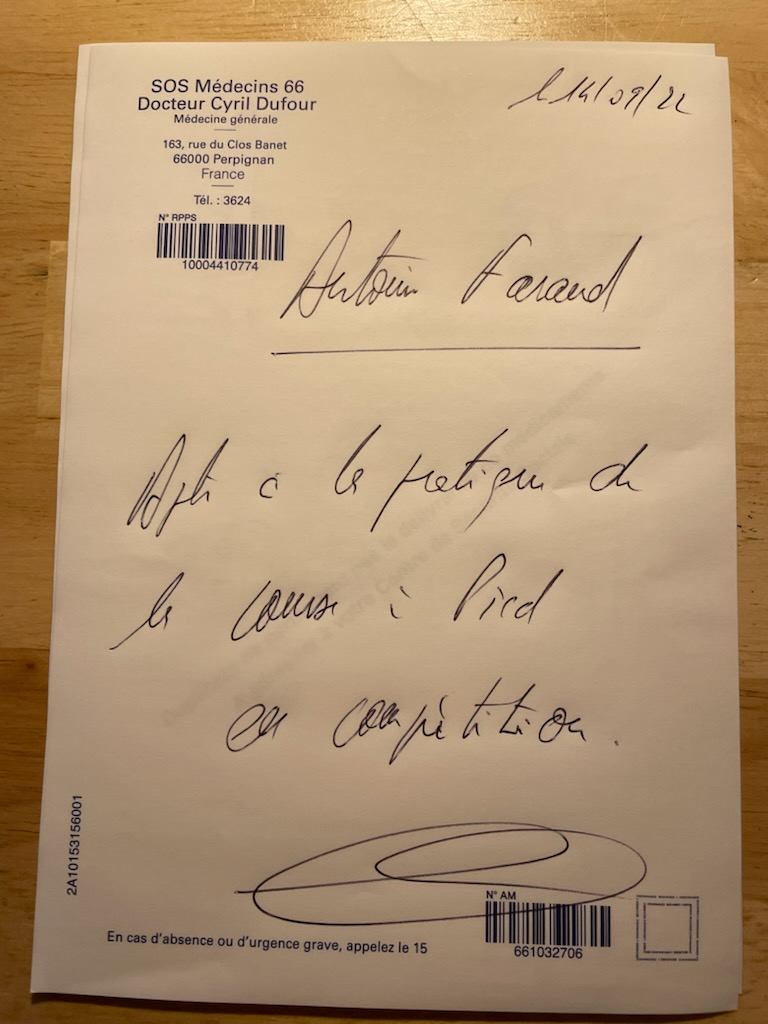 SOS Médecins 66
Docteur Cyril Dufour
Médecine générale
163, rue du Clos Banet
66000 Perpignan
France
Tél. : 3624
N° RPPS
10004410774
le 14/09/22
Antoine Faraud
Apte à la pratique de
la course à Pied
en compétition.
2A10153156001
N° AM
661032706
En cas d'absence ou d'urgence grave, appelez le 15